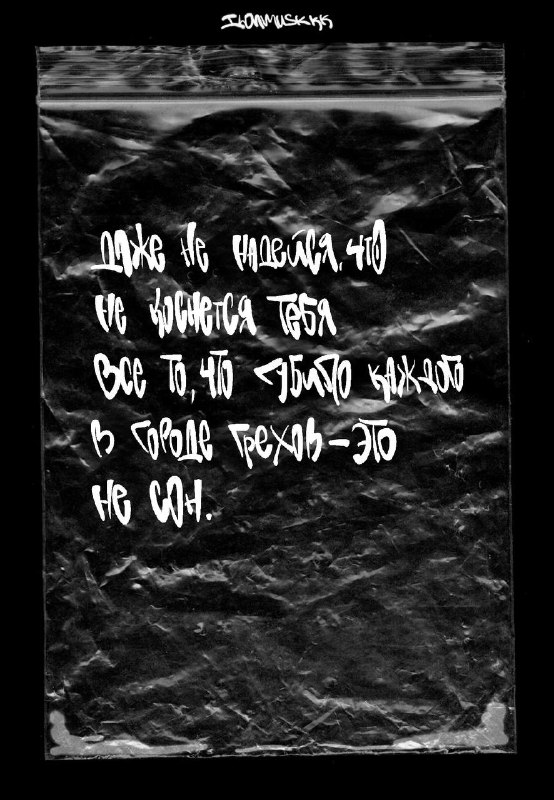 ILONMUSKKK
даже не надейся, что
не коснется тебя
все то, что сгубило каждого
в городе грехов – это
не сон.